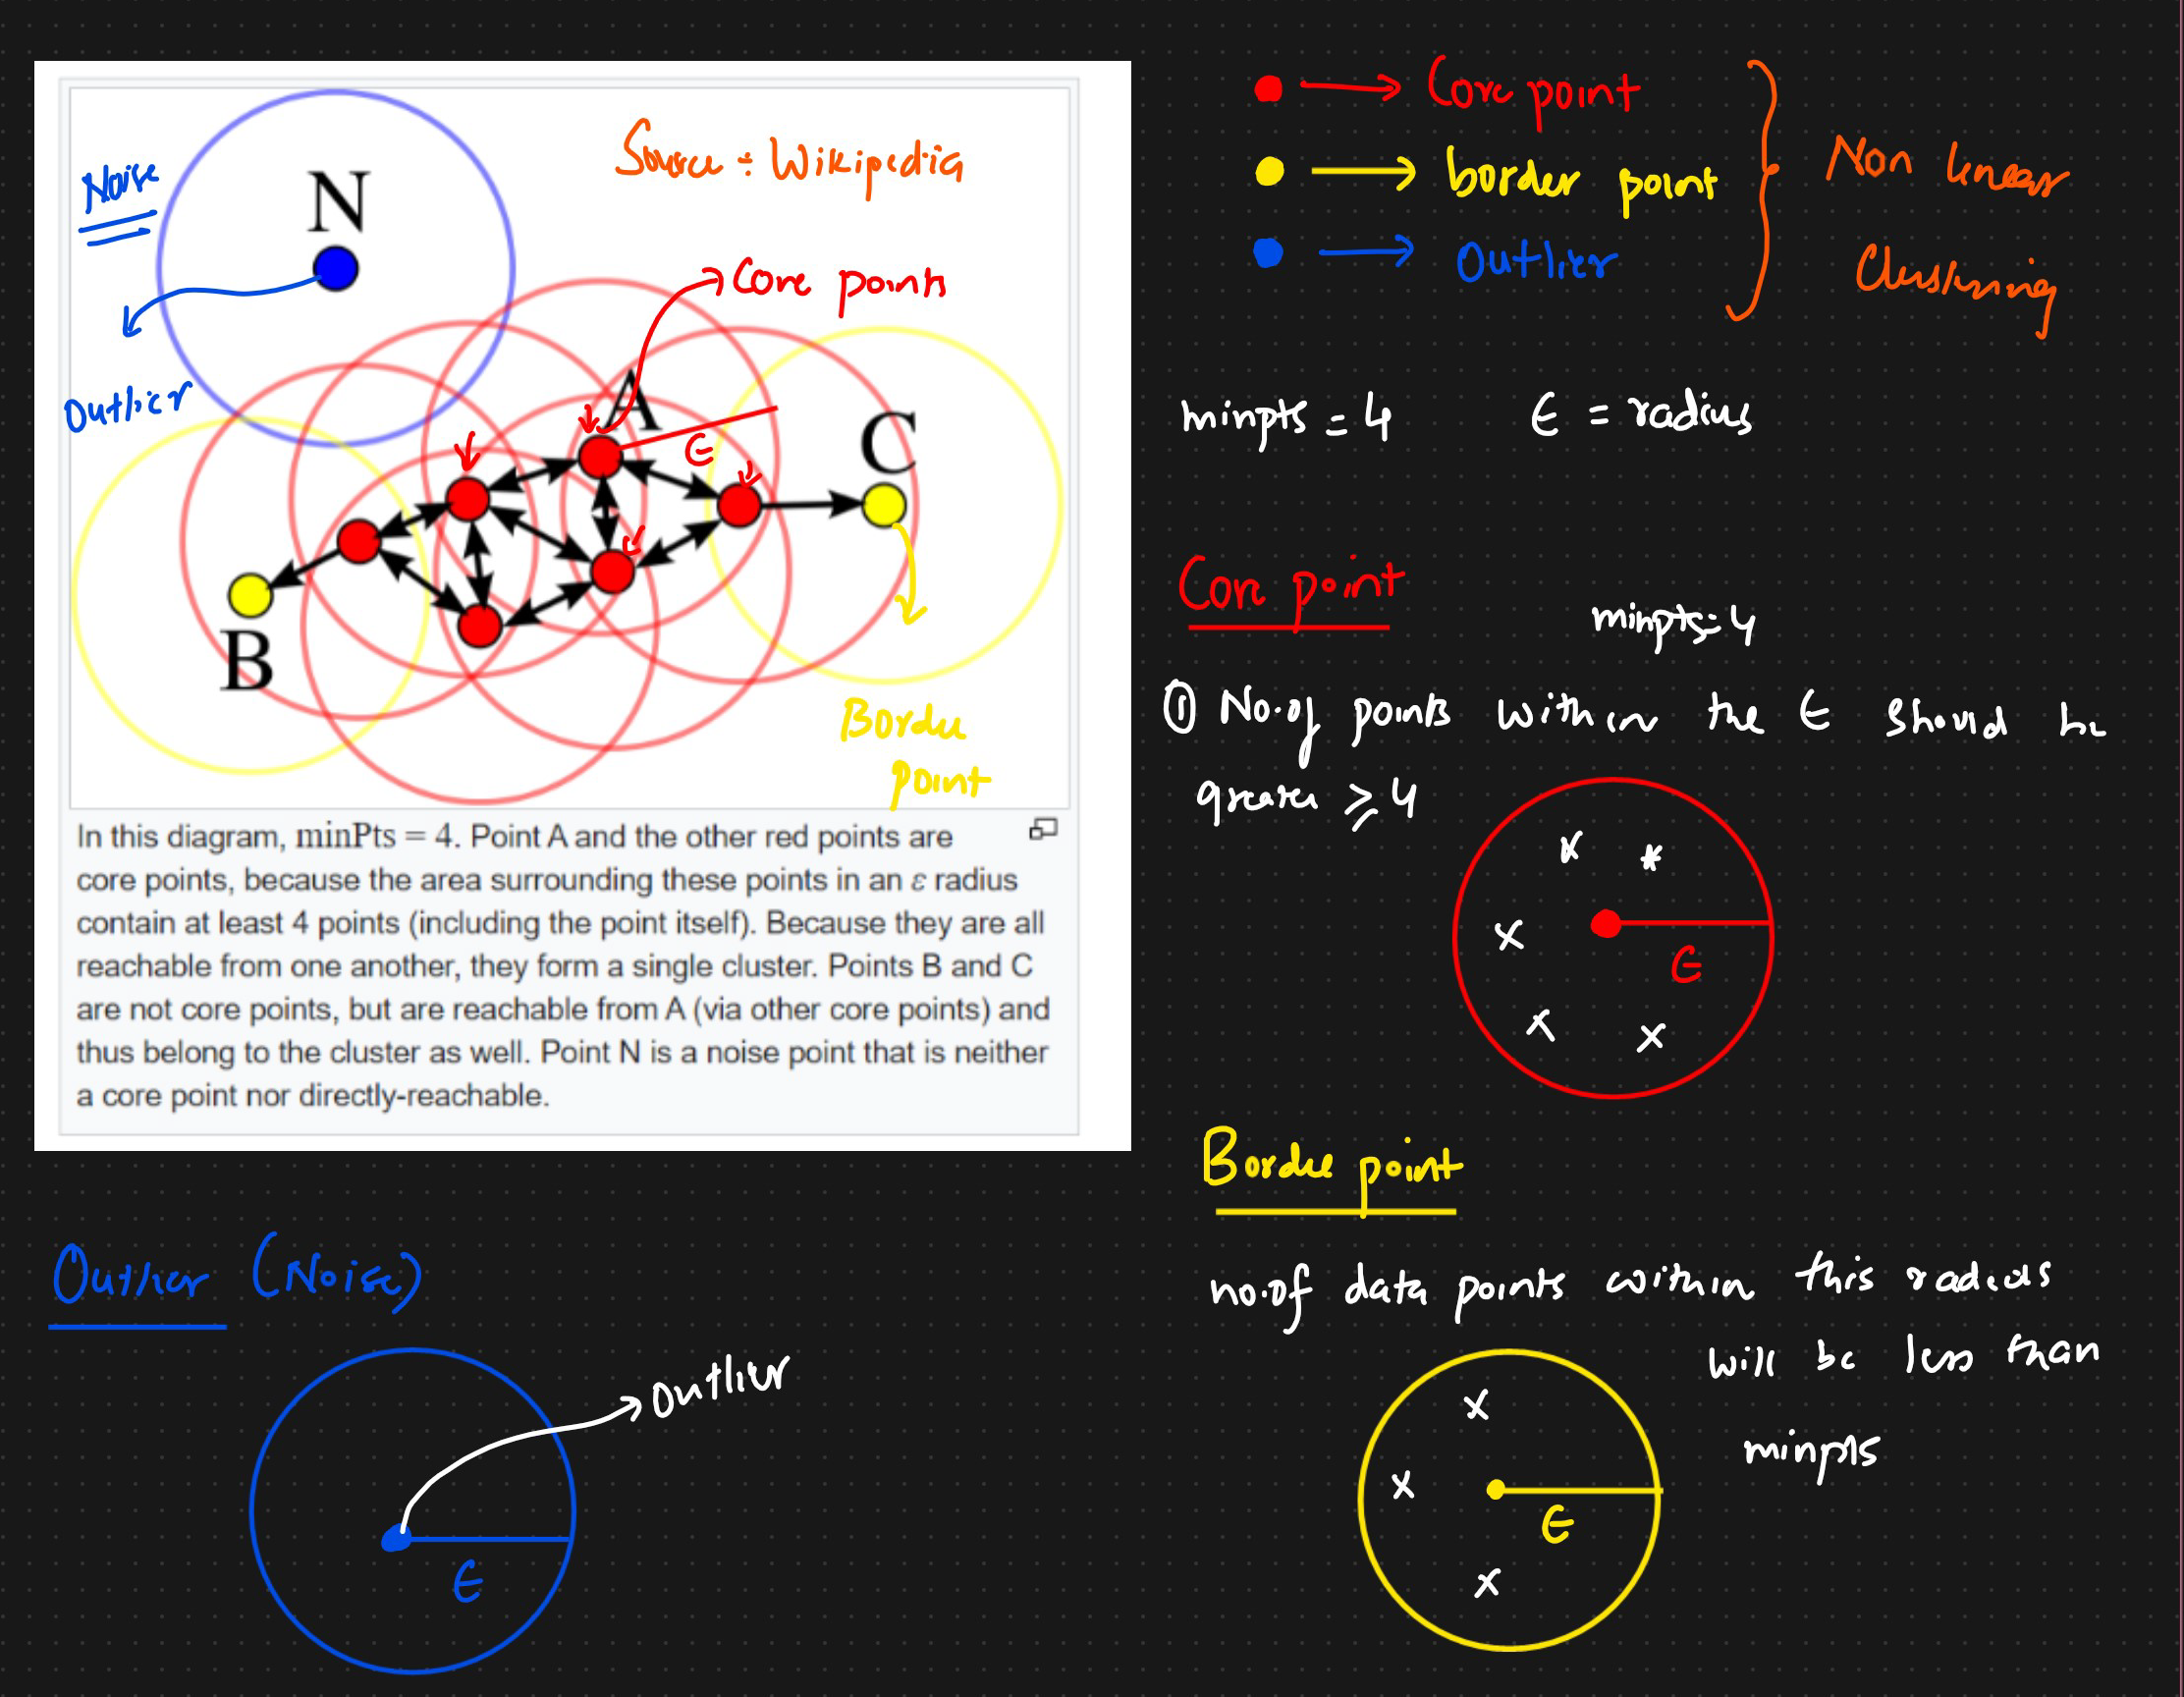 Noise
N
Source ÷ Wikipedia
Core points
Outlier
A
C
ϵ
B
Border
point
In this diagram, minPts = 4. Point A and the other red points are
core points, because the area surrounding these points in an ε radius
contain at least 4 points (including the point itself). Because they are all
reachable from one another, they form a single cluster. Points B and C
are not core points, but are reachable from A (via other core points) and
thus belong to the cluster as well. Point N is a noise point that is neither
a core point nor directly-reachable.
Outlier (Noise)
Outlier
ϵ
Core point
border point
Outlier
Non linear
Clustering
minpts = 4 ϵ = radius
Core point
minpts = 4
① No. of points within the ϵ should be
greater ≥ 4
x x
x
ϵ
x x
Border point
no. of data points within this radius
will be less than
minpts
x
x
ϵ
x